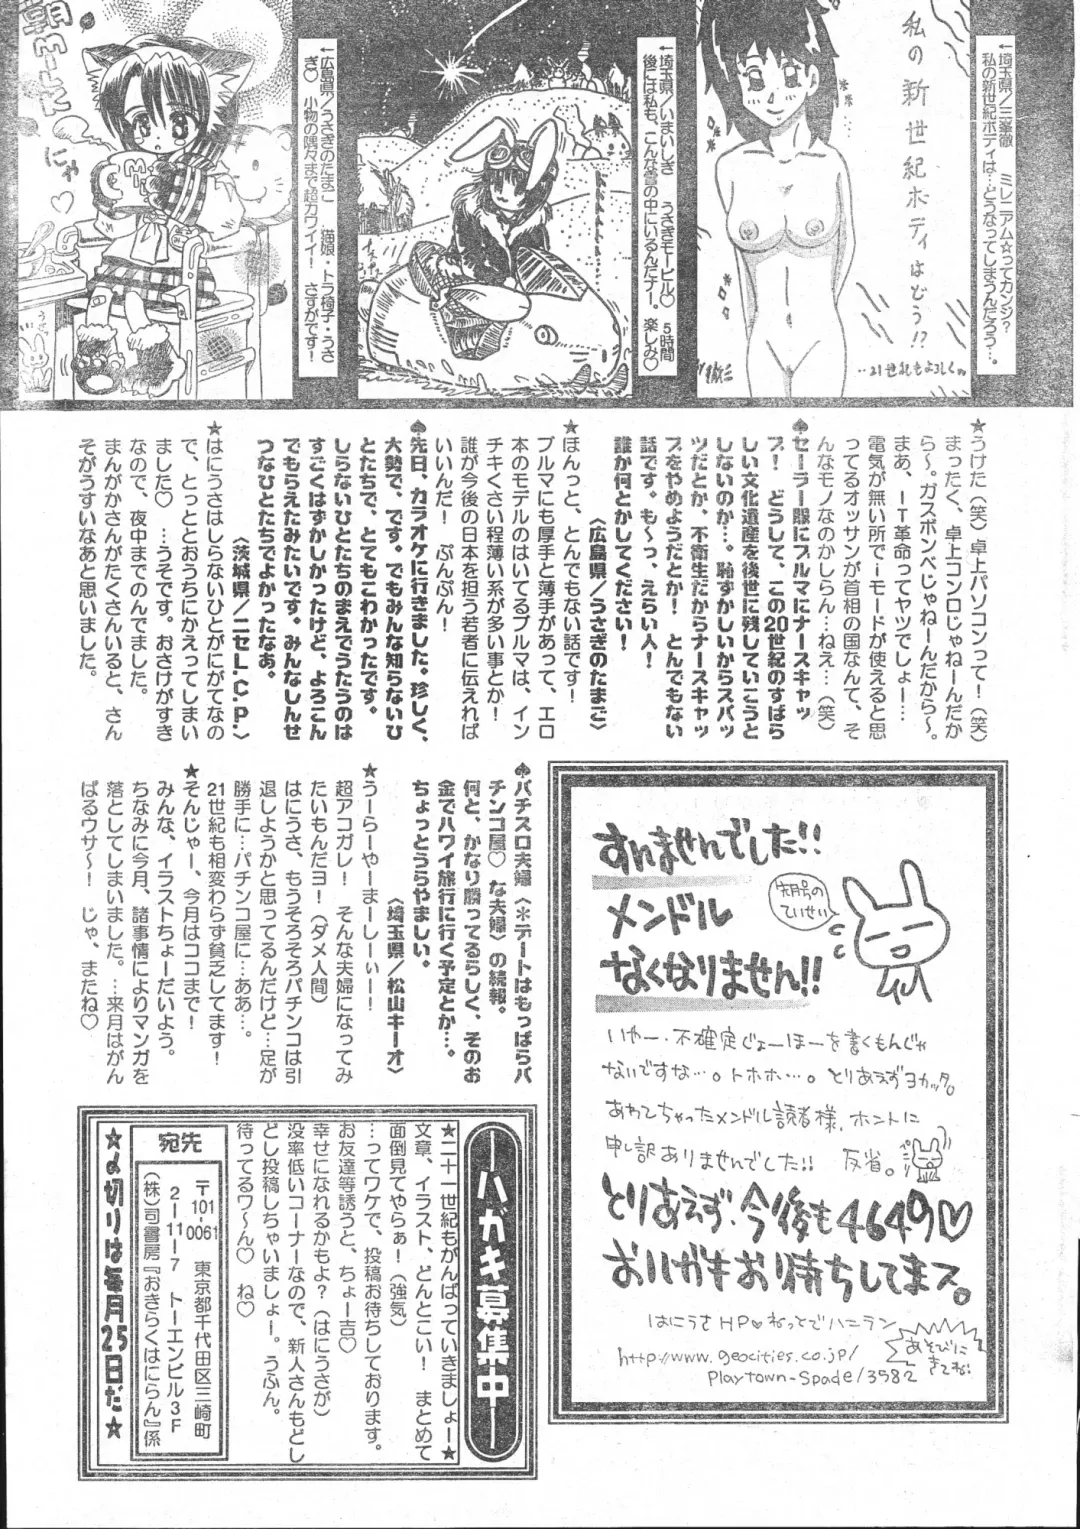 ←埼玉県/三峯徹
ミレニアム☆ってカンジ?
私の新世紀ボディは…どうなってしまうんだろう…。
私の新世紀ボディはどう!?
…21世紀もよろしく
←埼玉県/いまいしき
うさぎモービル♡ 5時間
後には私も、こんな雪の中にいるんだナー。楽しみ♡
←広島県/うさぎのたまご
猫娘・トラ椅子・うさ
ぎ♡ 小物の隅々まで超カワイイ! さすがです!
にゃ♡
★うけた(笑)卓上パソコンって!(笑)
まったく、卓上コンロじゃねーんだか
ら〜。ガスボンベじゃねーんだから〜。
まあ、IT革命ってヤツでしょー…
電気が無い所でiモードが使えると思
ってるオッサンが首相の国なんて、そ
んなモノなのかしらん…ねえ…(笑)
♠セーラー服にブルマにナースキャッ
プ! どうして、この20世紀のすばら
しい文化遺産を後世に残していこうと
しないのか…。恥ずかしいからスパッ
ツだとか、不衛生だからナースキャッ
プをやめようだとか! とんでもない
話です。も〜っ、えらい人!
誰か何とかしてください!
〈広島県/うさぎのたまご〉
★ほんっと、とんでもない話です!
ブルマにも厚手と薄手があって、エロ
本のモデルのはいてるブルマは、イン
チキくさい程薄い系が多い事とか!
誰が今後の日本を担う若者に伝えれば
いいんだ! ぷんぷん!
♠先日、カラオケに行きました。珍しく、
大勢で、です。でもみんな知らないひ
とたちで、とてもこわかったです。
しらないひとたちのまえでうたうのは
すごくはずかしかったけど、よろこん
でもらえたみたいです。みんなしんせ
つなひとたちでよかったなあ。
〈茨城県/ニセL.C.P〉
★はにうさはしらないひとがにがてなの
で、とっととおうちにかえってしまい
ました♡ …うそです。おさけがすき
なので、夜中までのんでました。
まんがかさんがたくさんいると、さん
そがうすいなあと思いました。
♠パチスロ夫婦〈※デートはもっぱらパ
チンコ屋♡な夫婦〉の続報。
何と、かなり勝ってるらしく、そのお
金でハワイ旅行に行く予定とか…。
ちょっとうらやましい。
〈埼玉県/松山キーオ〉
★うーらーやーまーしーぃー!
超アコガレ! そんな夫婦になってみ
たいもんだヨ!(ダメ人間)
はにうさ、もうそろそろパチンコは引
退しようかと思ってるんだけど…足が
勝手に…パチンコ屋に…ああ…。
21世紀も相変わらず貧乏してます!
★そんじゃー、今月はココまで!
みんな、イラストちょーだいよう。
ちなみに今月、諸事情によりマンガを
落としてしまいました。…来月はがん
ばるウサ〜! じゃ、またね♡
すいませんでした!!
メンドル
なくなりません!!
先月号の
ていせい
いやー・不確定じょーほーを書くもんじゃ
ないですな…。トホホ…。とりあえずヨカッタ。
あわてちゃったメンドル読者様、ホントに
申し訳ありませんでした!! 反省。
ペコリ
とりあえず・今後も4649♡
おハガキお待ちしてまス。
はにうさHP♡ねっとでハニラン
http://www.geocities.co.jp/
Playtown-Spade/3582
あそびに
きてね♡
―ハガキ募集中―
★二十一世紀もがんばっていきましょー★
文章、イラスト、どんとこい! まとめて
面倒見てやらぁ!(強気)
…ってワケで、投稿お待ちしております。
お友達等誘うと、ちょー吉♡
幸せになれるかもよ?(はにうさが)
没率低いコーナーなので、新人さんもどし
どし投稿しちゃいましょー。うふん。
待ってるワ〜ん♡ ね♡
宛先
〒101-0061 東京都千代田区三崎町
2-11-7 トーエンビル3F
(株)司書房『おきらくはにらん』係
★〆切りは毎月25日だ★